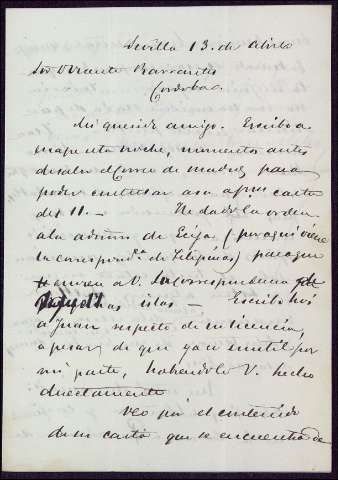 Sevilla 13 de Abril
Sor Dn Vicente Barrantes
Cordoba.
Mi querido amigo. Escribo a
esta noche, momentos antes
de salir el Correo de Madrid para
poder contestar a su carta
del 11. — He dado la orden
a la admon de Ecija (por aqui viene
la correspond.a de Filipinas) para que
envien a V. la correspondencia de
islas — Escribo hoy
a Juan respecto de su licencia,
a pesar de que ya es inutil por
mi parte, habiendolo V. hecho
directamente
Veo por el contenido
de su carta que se encuentra de